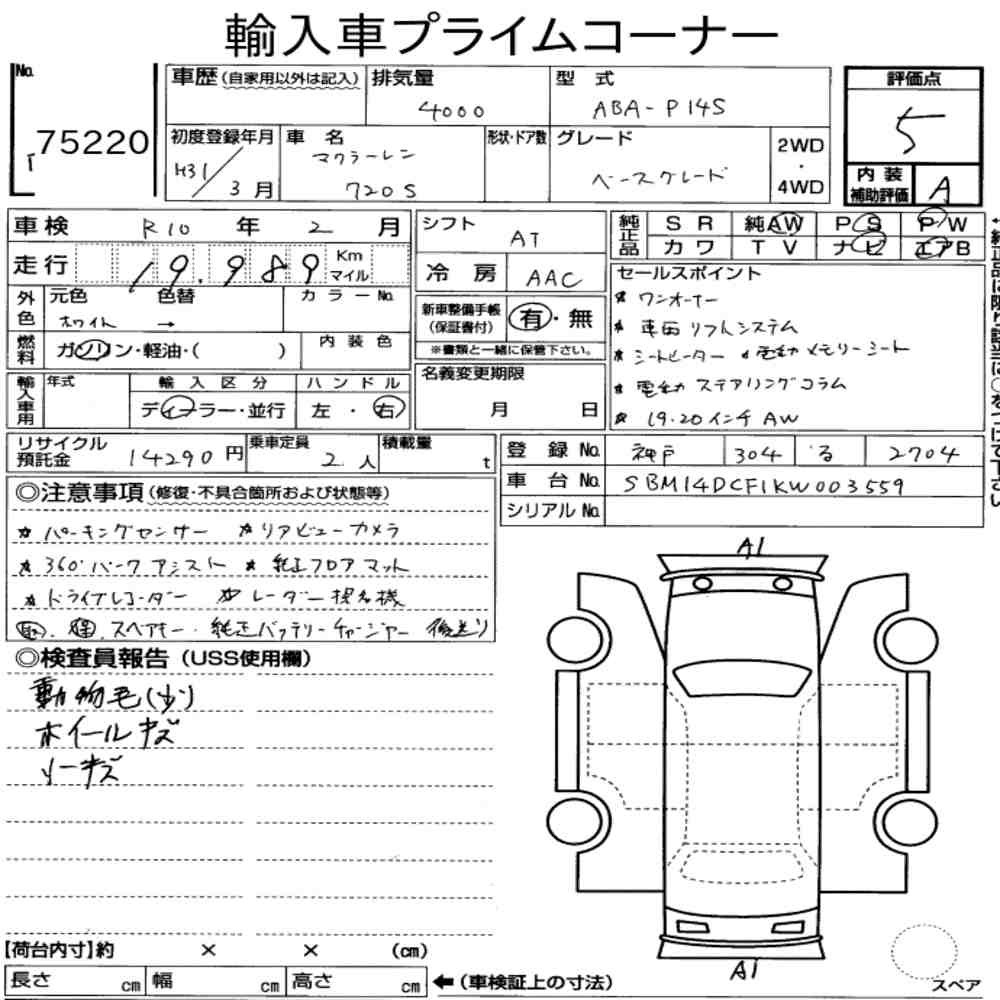 輸入車プライムコーナー
No. 75220
車歴(自家用以外は記入)
排気量 4000
型式 ABA-P14S
評価点 5
初度登録年月 H31/3月
車名 マクラーレン 720S
形状・ドア数
グレード ベースグレード
2WD・4WD
内装補助評価 A
車検 R10年 2月
シフト AT
純正品 SR 純AW PS P/W
カワ TV ナビ エアB
走行 19,989 Km マイル
冷房 AAC
セールスポイント
外色 元色 色替 カラーNo.
ホワイト →
新車整備手帳(保証書付) 有・無
※書類と一緒に保管下さい。
* ワンオーナー
* 車両リフトシステム
* シートヒーター * 電動メモリーシート
* 電動ステアリングコラム
* 19.20インチAW
燃料 ガソリン・軽油・( ) 内装色
名義変更期限 月 日
輸入車用 年式 輸入区分 ハンドル
ディーラー・並行 左・右
リサイクル預託金 14290円
乗車定員 2人
積載量 t
登録No. 神戸 304 る 2704
車台No. SBM14DCF1KW003559
シリアルNo.
◎注意事項(修復・不具合箇所および状態等)
* パーキングセンサー * リアビューカメラ
* 360°パークアシスト * 純正フロアマット
* ドライブレコーダー * レーダー探知機
取.保.スペアキー.純正バッテリーチャージャー 後送り
◎検査員報告(USS使用欄)
動物毛(少)
ホイールキズ
シートキズ
A1
A1
【荷台内寸】約 × × (cm)
長さ cm 幅 cm 高さ cm ←(車検証上の寸法)
スペア